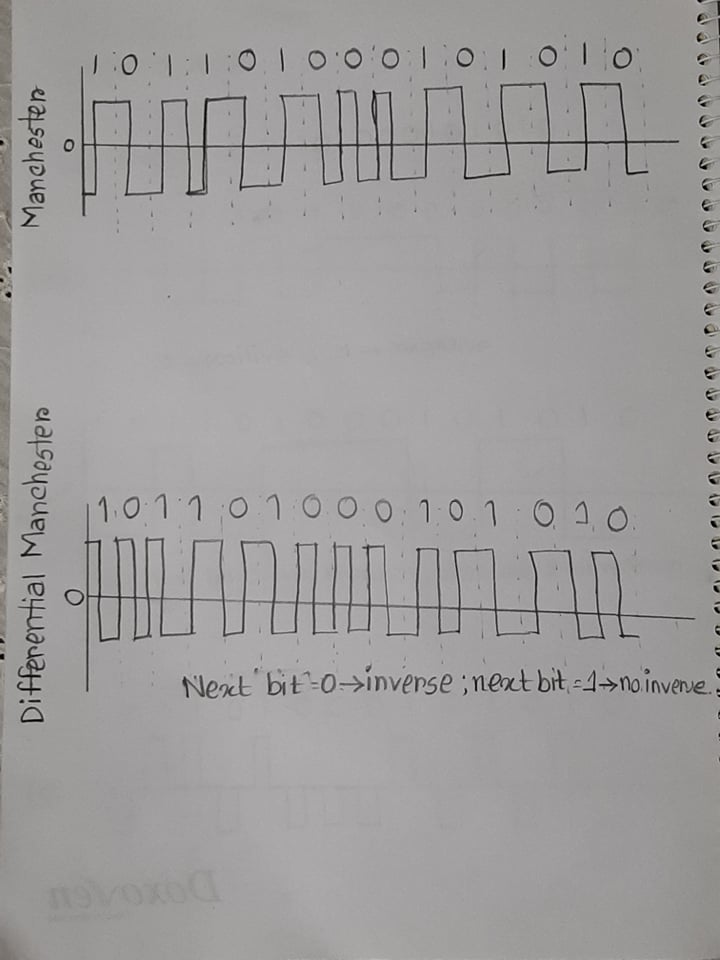 Manchester
1 0 1 1 0 1 0 0 0 1 0 1 0 1 0
0
Differential Manchester
1 0 1 1 0 1 0 0 0 1 0 1 0 1 0
0
Next bit=0→inverse; next bit=1→no inverve.
Doxoven